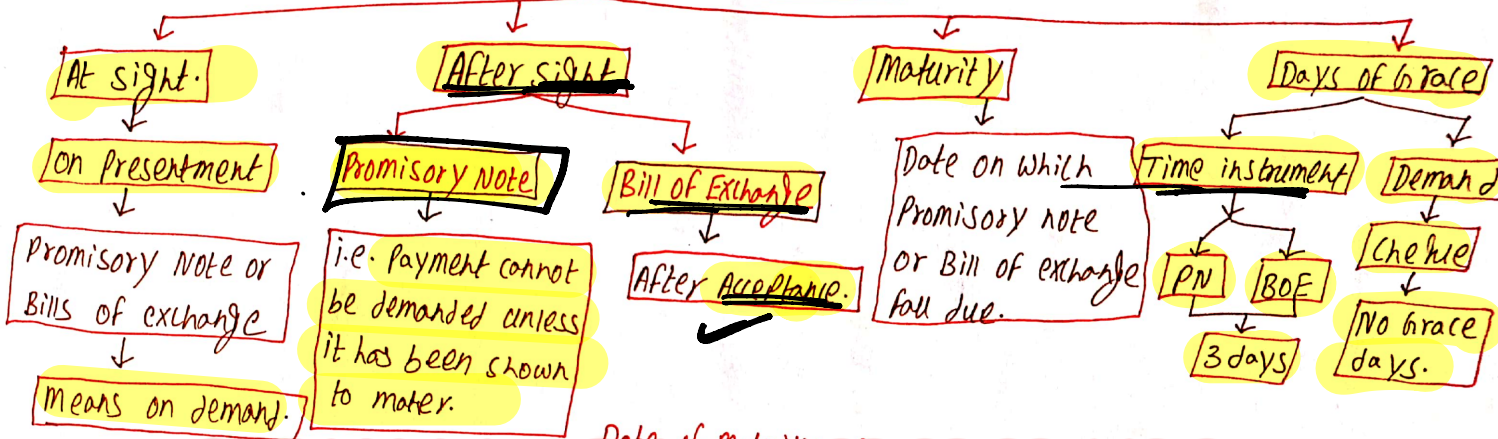 At sight.
on Presentment
Promisory Note or
Bills of exchange
means on demand.
After sight
Promisory Note
i.e. Payment cannot
be demanded unless
it has been shown
to maker.
Bill of Exchange
After Acceptance.
Maturity
Date on which
Promisory note
or Bill of exchange
fall due.
Days of Grace
Time instrument
PN
BOE
3 days
Demand
Cheque
No Grace
days.
Date of